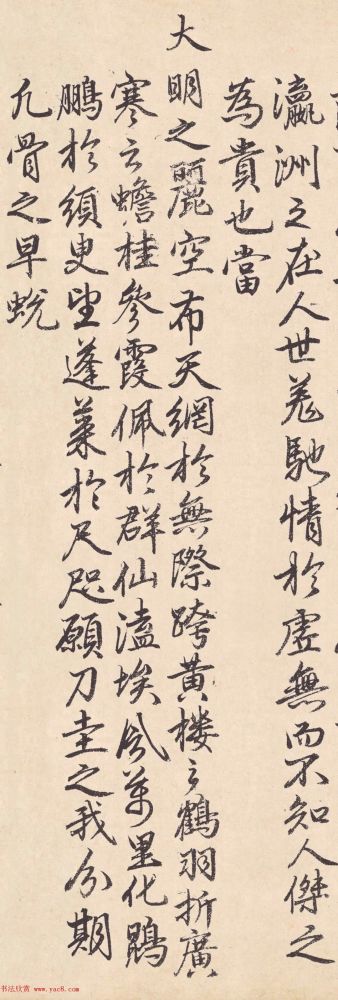 瀛洲之在人世羌馳情於虛無而不知人傑之
為貴也當
大明之麗空布天網於無際跨黃樓之鶴羽折廣
寒之蟾桂參霞佩於群仙溘埃風萬里化鵾
鵬於須臾望蓬萊於尺咫願刀圭之我分期
凡骨之早蛻
书法欣赏 www.yac8.com